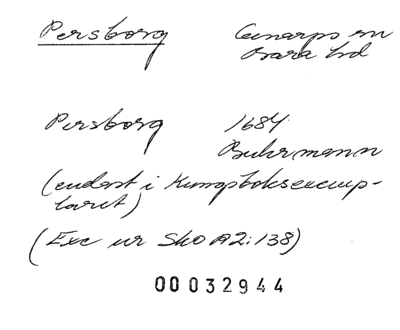 Persborg Genarps sn
Bara hd
Persborg 1684
Buhrmann
(endast i Kungsboksexemp-
laret)
(Exc ur SkO A2:138)
00032944